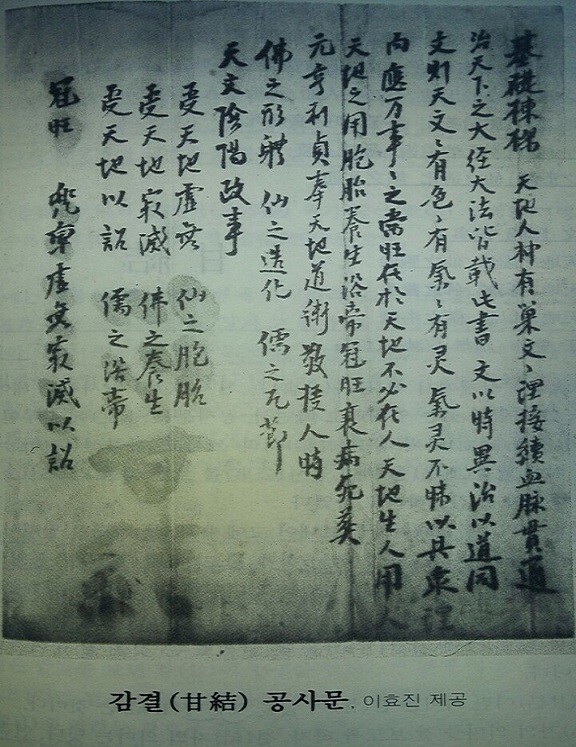 基礎棟樑 天地人神有巢文〻理接續血脉貫通
治天下之大經大法皆載此書 文以時異治以道同
文則天文〻有色〻有氣〻有灵 氣灵不昧以具衆理
而應万事〻之當旺在於天地不必在人 天地生人用人
天地之用胞胎養生浴帶冠旺衰病死葬
元亨利貞奉天地道術敬授人時
佛之形體 仙之造化 儒之凡節
天文陰陽政事
受天地虛無 仙之胞胎
受天地寂滅 佛之養生
受天地以詔 儒之浴帶
冠旺 兜率虛無寂滅以詔
감결(甘結) 공사문. 이효진 제공